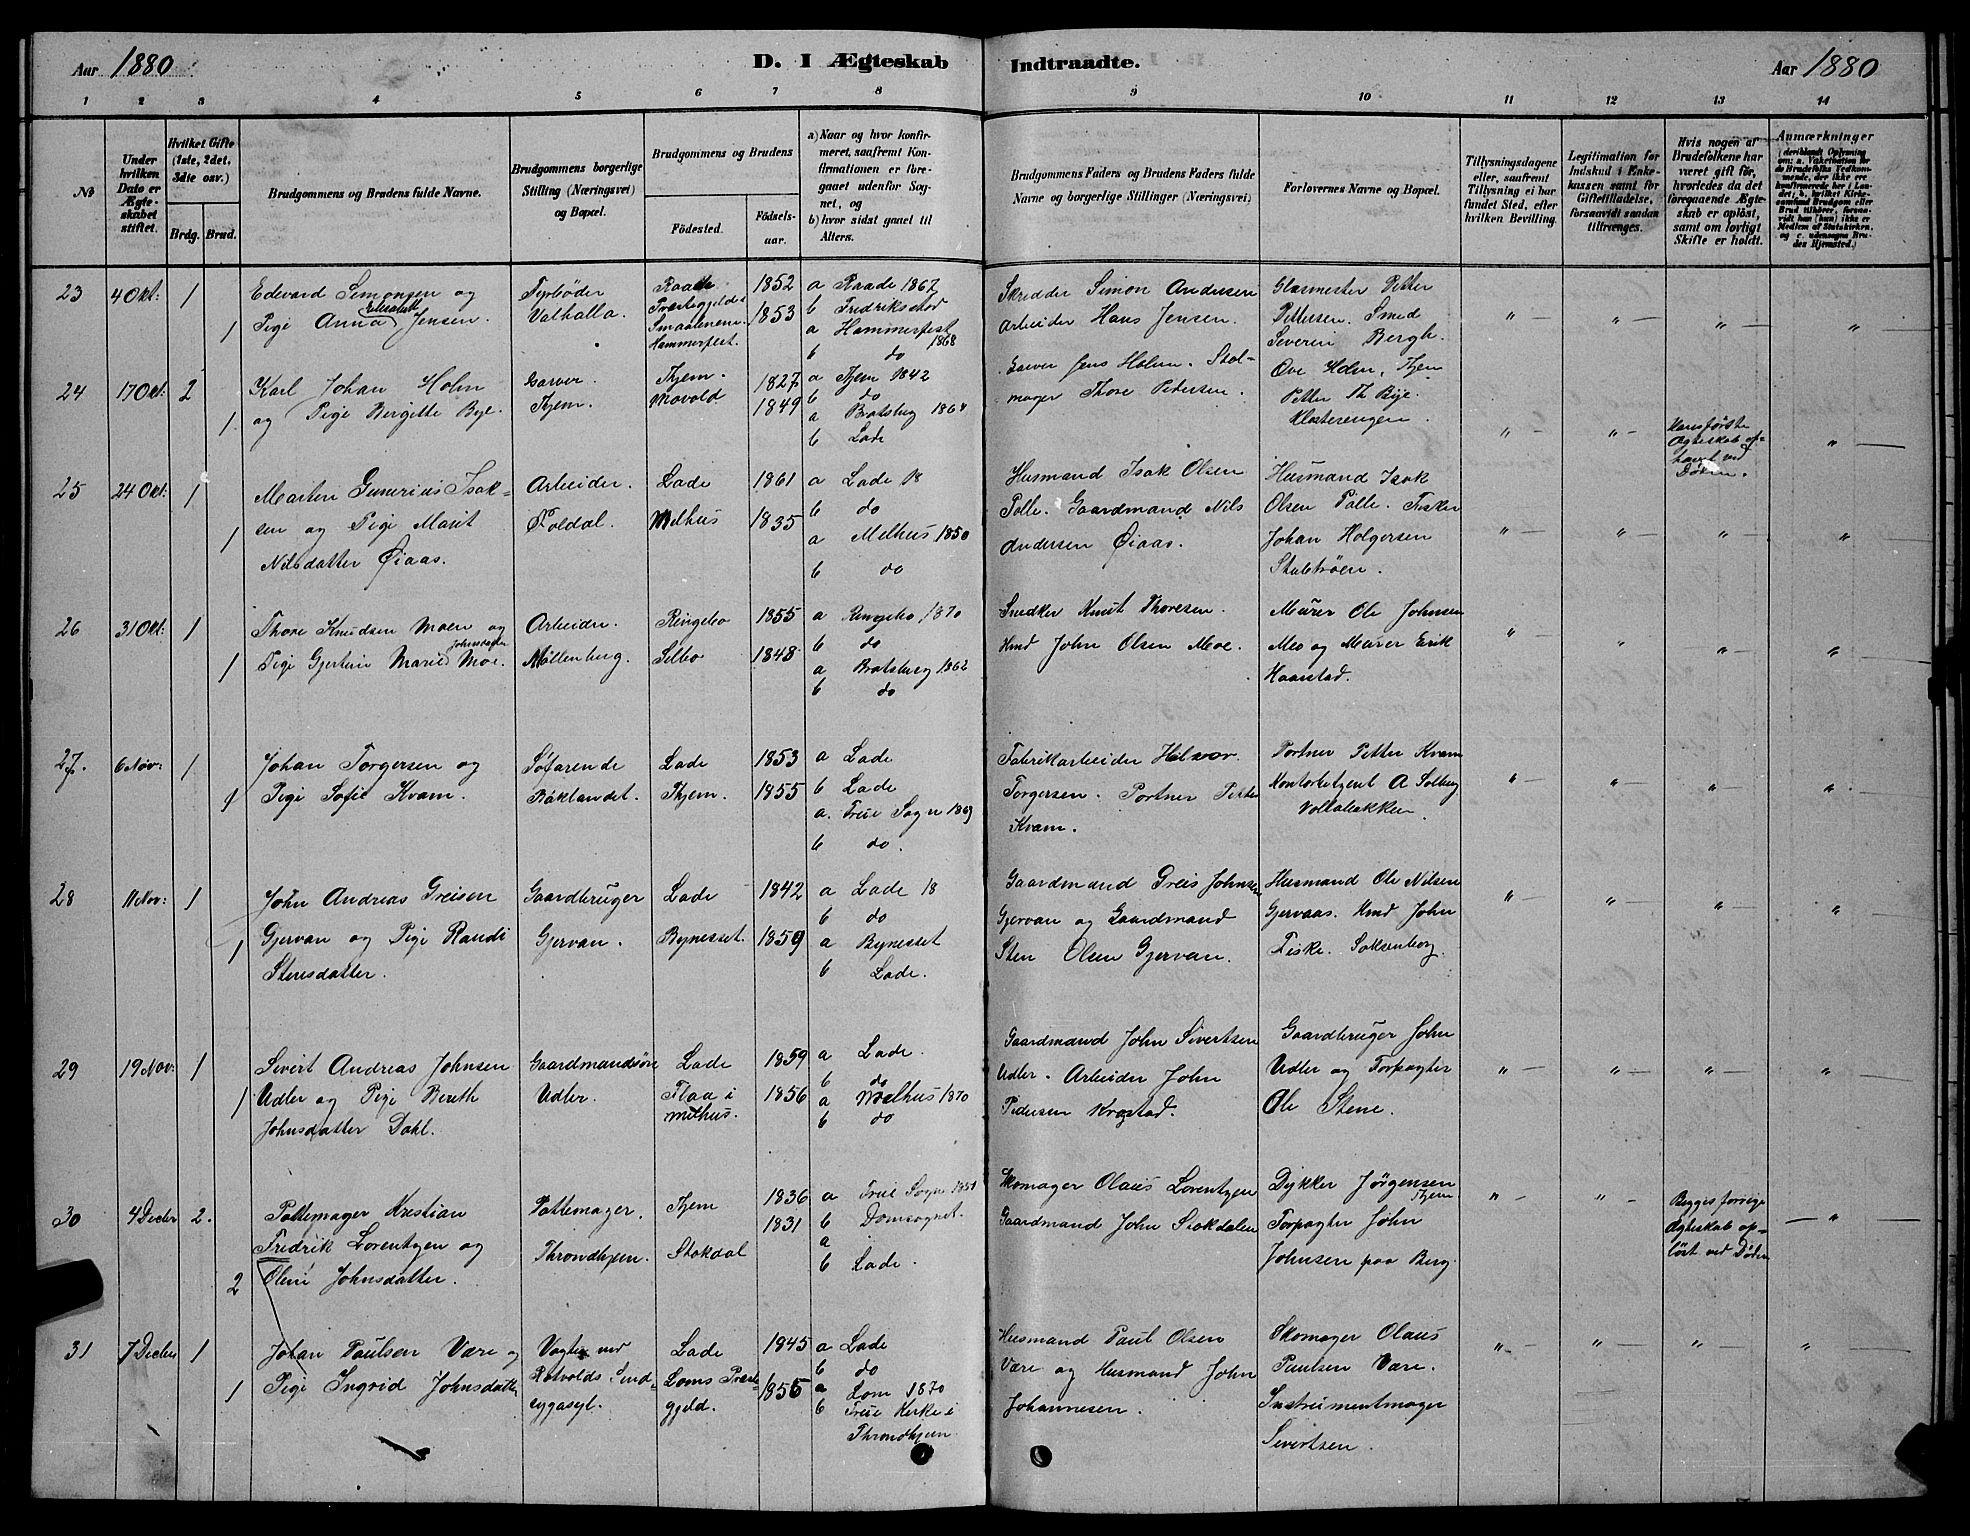 Aar 1880
D. I Ægteskab Indtraadte.
Aar 1880
1 2 3 4 5 6 7 8 9 10 11 12 13 14
No
Under hvilken Dato er Ægteskabet stiftet.
Hvilket Gifte (1ste, 2det, 3die osv.)
Brdg. Brud.
Brudgommens og Brudens fulde Navne.
Brudgommens borgerlige Stilling (Næringsvei) og Bopæl.
Brudgommens og Brudens
Fødested.
Fødselsaar.
a) Naar og hvor konfirmeret, saafremt Konfirmationen er foregaaet udenfor Sognet, og
b) hvor sidst gaaet til Alters.
Brudgommens Faders og Brudens Faders fulde Navne og borgerlige Stillinger (Næringsvei)
Forlovernes Navne og Bopæl.
Tillysningsdagene eller, saafremt Tillysning ei har fundet Sted, efter hvilken Bevilling.
Legitimation for Indskud i Enkekassen samt for Giftetilladelse, forsaavidt saadan tiltrænges.
Hvis nogen af Brudefolkene har været gift før, hvorledes da det foregaaende Ægteskab er opløst, samt om lovligt Skifte er holdt.
Anmærkninger
23 4 Okt: 1
1
Edevard Simonsen og
Pige Anna Elisabeth Jensen.
Fyrbøder
Valhalla.
Raade
Præstegjeldet
Smaalenene
Hammerfest.
1852
1853
a Raade 1867
b Fredriksstad
a Hammerfest 1868
b do
Skrædder Simon Andersen
Arbeider Hans Jensen.
Glasmester Petter
Pettersen. Smed
Severin Bergh.
24 17 Okt: 2
1
Karl Johan Holm
og Pige Bergitte Bye.
Garver.
Ihjem.
Thjem.
Movold
1827
1849
a Thjem 1842
b do
a Bratsberg 1864
b Lade
Garver Jens Holm. Stolmager
Thore Pedersen.
Ove Holm, Thjem
Petter Th Bye.
Klosterengen.
Hans første
Ægteskab op-
hævt ved
Døden.
25 24 Okt: 1
1
Martin Gunerius Isak-
sen og Pige Marit
Nilsdatter Øiaas.
Arbeider.
Foldal.
Lade
Melhus
1861
1835
a Lade 18
b do
a Melhus 1850
b do
Husmand Isak Olsen
Palle. Gaardmand Nils
Andersen Øiaas.
Husmand Isak
Olsen Palle. Fisker
Johan Holgersen
26 31 Okt: 1
1
Thore Knudsen Moen og
Pige Gjertine Marie Johnsdatter Moe.
Arbeider.
Møllenberg.
Ringebo
Selbo
1855
1848
a Ringebo 1870
b do
a Bratsberg 1862
b do
Snedker Knut Thoresen.
Hmd John Olsen Moe.
Murer Ole Johnsen
Meo og Murer Erik
Haarstad.
27. 6 Nov: 1
1
Johan Torgersen og
Pige Sofie Kvam.
Søfarende
Baklandet.
Lade
Thjem.
1853
1855
a Lade
b Lade
a. Frue Sogn 1869
b do.
Fabrikarbeider Halvor
Torgersen. Portner Petter
Kvam.
Portner Petter Kvam
Kontorbetjent A Solberg
Vollabakken
28 11 Nov: 1
1
John Andreas Greisen
Gjervan og Pige Randi
Stensdatter.
Gaardbruger
Gjervan.
Lade
Bynesset.
1842
1859
a Lade 18
b do
a Bynesset
b Lade.
Gaardmand Greis Johnsen
Gjervan og Gaardmand
Sten Olsen Gjervan.
Husmand Ole Nilsen
Gjervaas. Hmd John
Fiske. Saksenborg.
29 19 Nov: 1
1
Sivert Andreas Johnsen
Udler og Pige Berith
Johnsdatter Dahl.
Gaardmandsøn
Udler.
Lade
Flaa i
Melhus.
1859
1856
a Lade.
b do
a Melhus 1870
b do
Gaardmand John Sivertsen
Udler. Arbeider John
Pedersen Kregstad.
Gaardbruger John
Udler og Forpagter
Ole Stene.
30 4 Decbr 2.
2
Pottemager Kristian
Fredrik Lorentzen og
Oline Johnsdatter.
Pottemager.
Throndhjem.
Thjem
Stokdal
1836
1831
a Frue Sogn 1851
b Domsognet.
a
b Lade.
Skomager Olaus Lorentzen
Gaardmand John Stokdalen
Dykker Jørgensen Thjem
Forpagter John
Johnsen paa Berg.
Begges forrige
Ægteskab op-
løst ved Døden
31 7 Decbr 1
1
Johan Paulsen Være og
Pige Ingrid Johnsdatter
Vogter ved
Rotvolds Sind-
sygeasyl.
Lade
Loms Præste-
gjeld.
1845
1855
a Lade
b do
a Lom 1870
b Frue Kirke i
Throndhjem
Husmand Paul Olsen
Være og Husmand John
Johannesen.
Skomager Olaus
Paulsen Være.
Instrumentmager
Sivertsen.